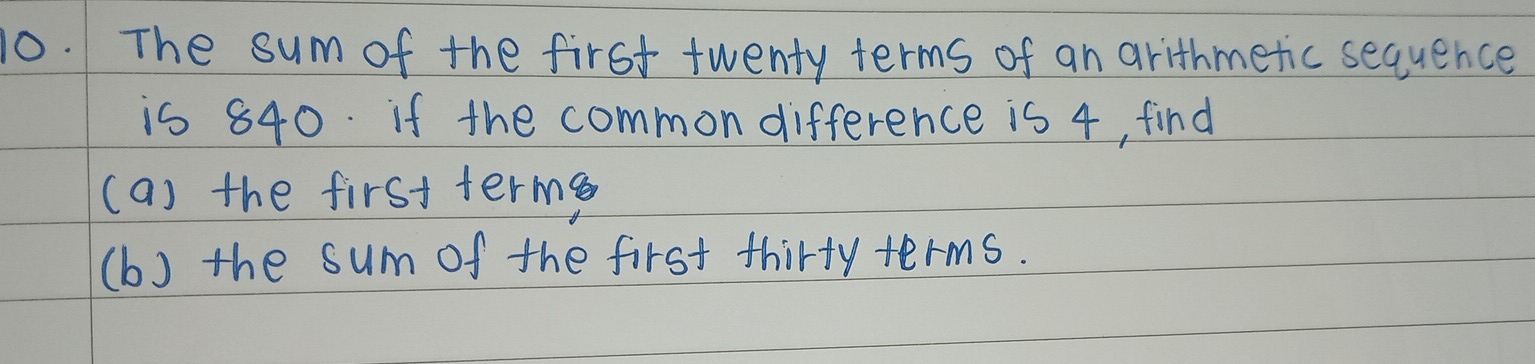 10. The sum of the first twenty terms of an arithmetic sequence
is 840. if the common difference is 4, find
(a) the first term,
(b) the sum of the first thirty terms.